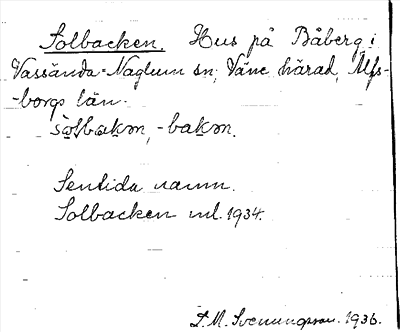 Solbacken. Hus på Båberg i
Vassända-Naglum sn; Väne härad, Älfs-
-borgs län.
Sentida namn.
Solbacken ml. 1934.
S. M. Svenungsson. 1936.